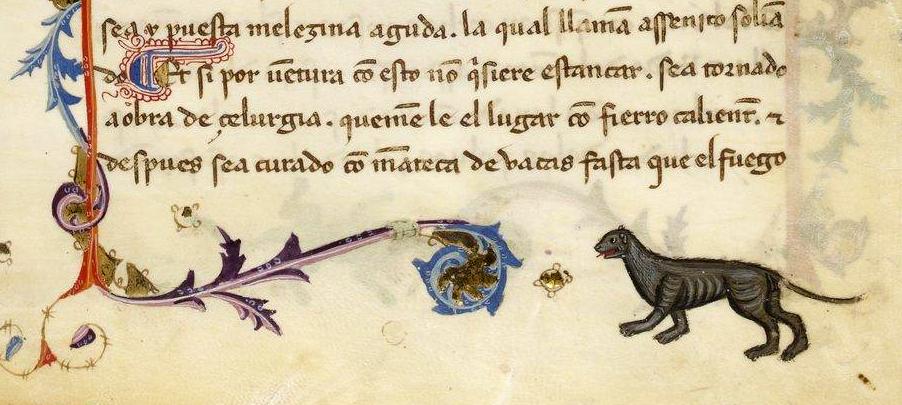 sea y puesta melezina aguda. la qual llamā assenico solia
do Et si por uētura cō esto nō q̄siere estancar. sea tornado
a obra de çelurgia. quemēle el lugar cō fierro calient. ⁊
despues sea curado cō māteca de vacas fasta que el fuego